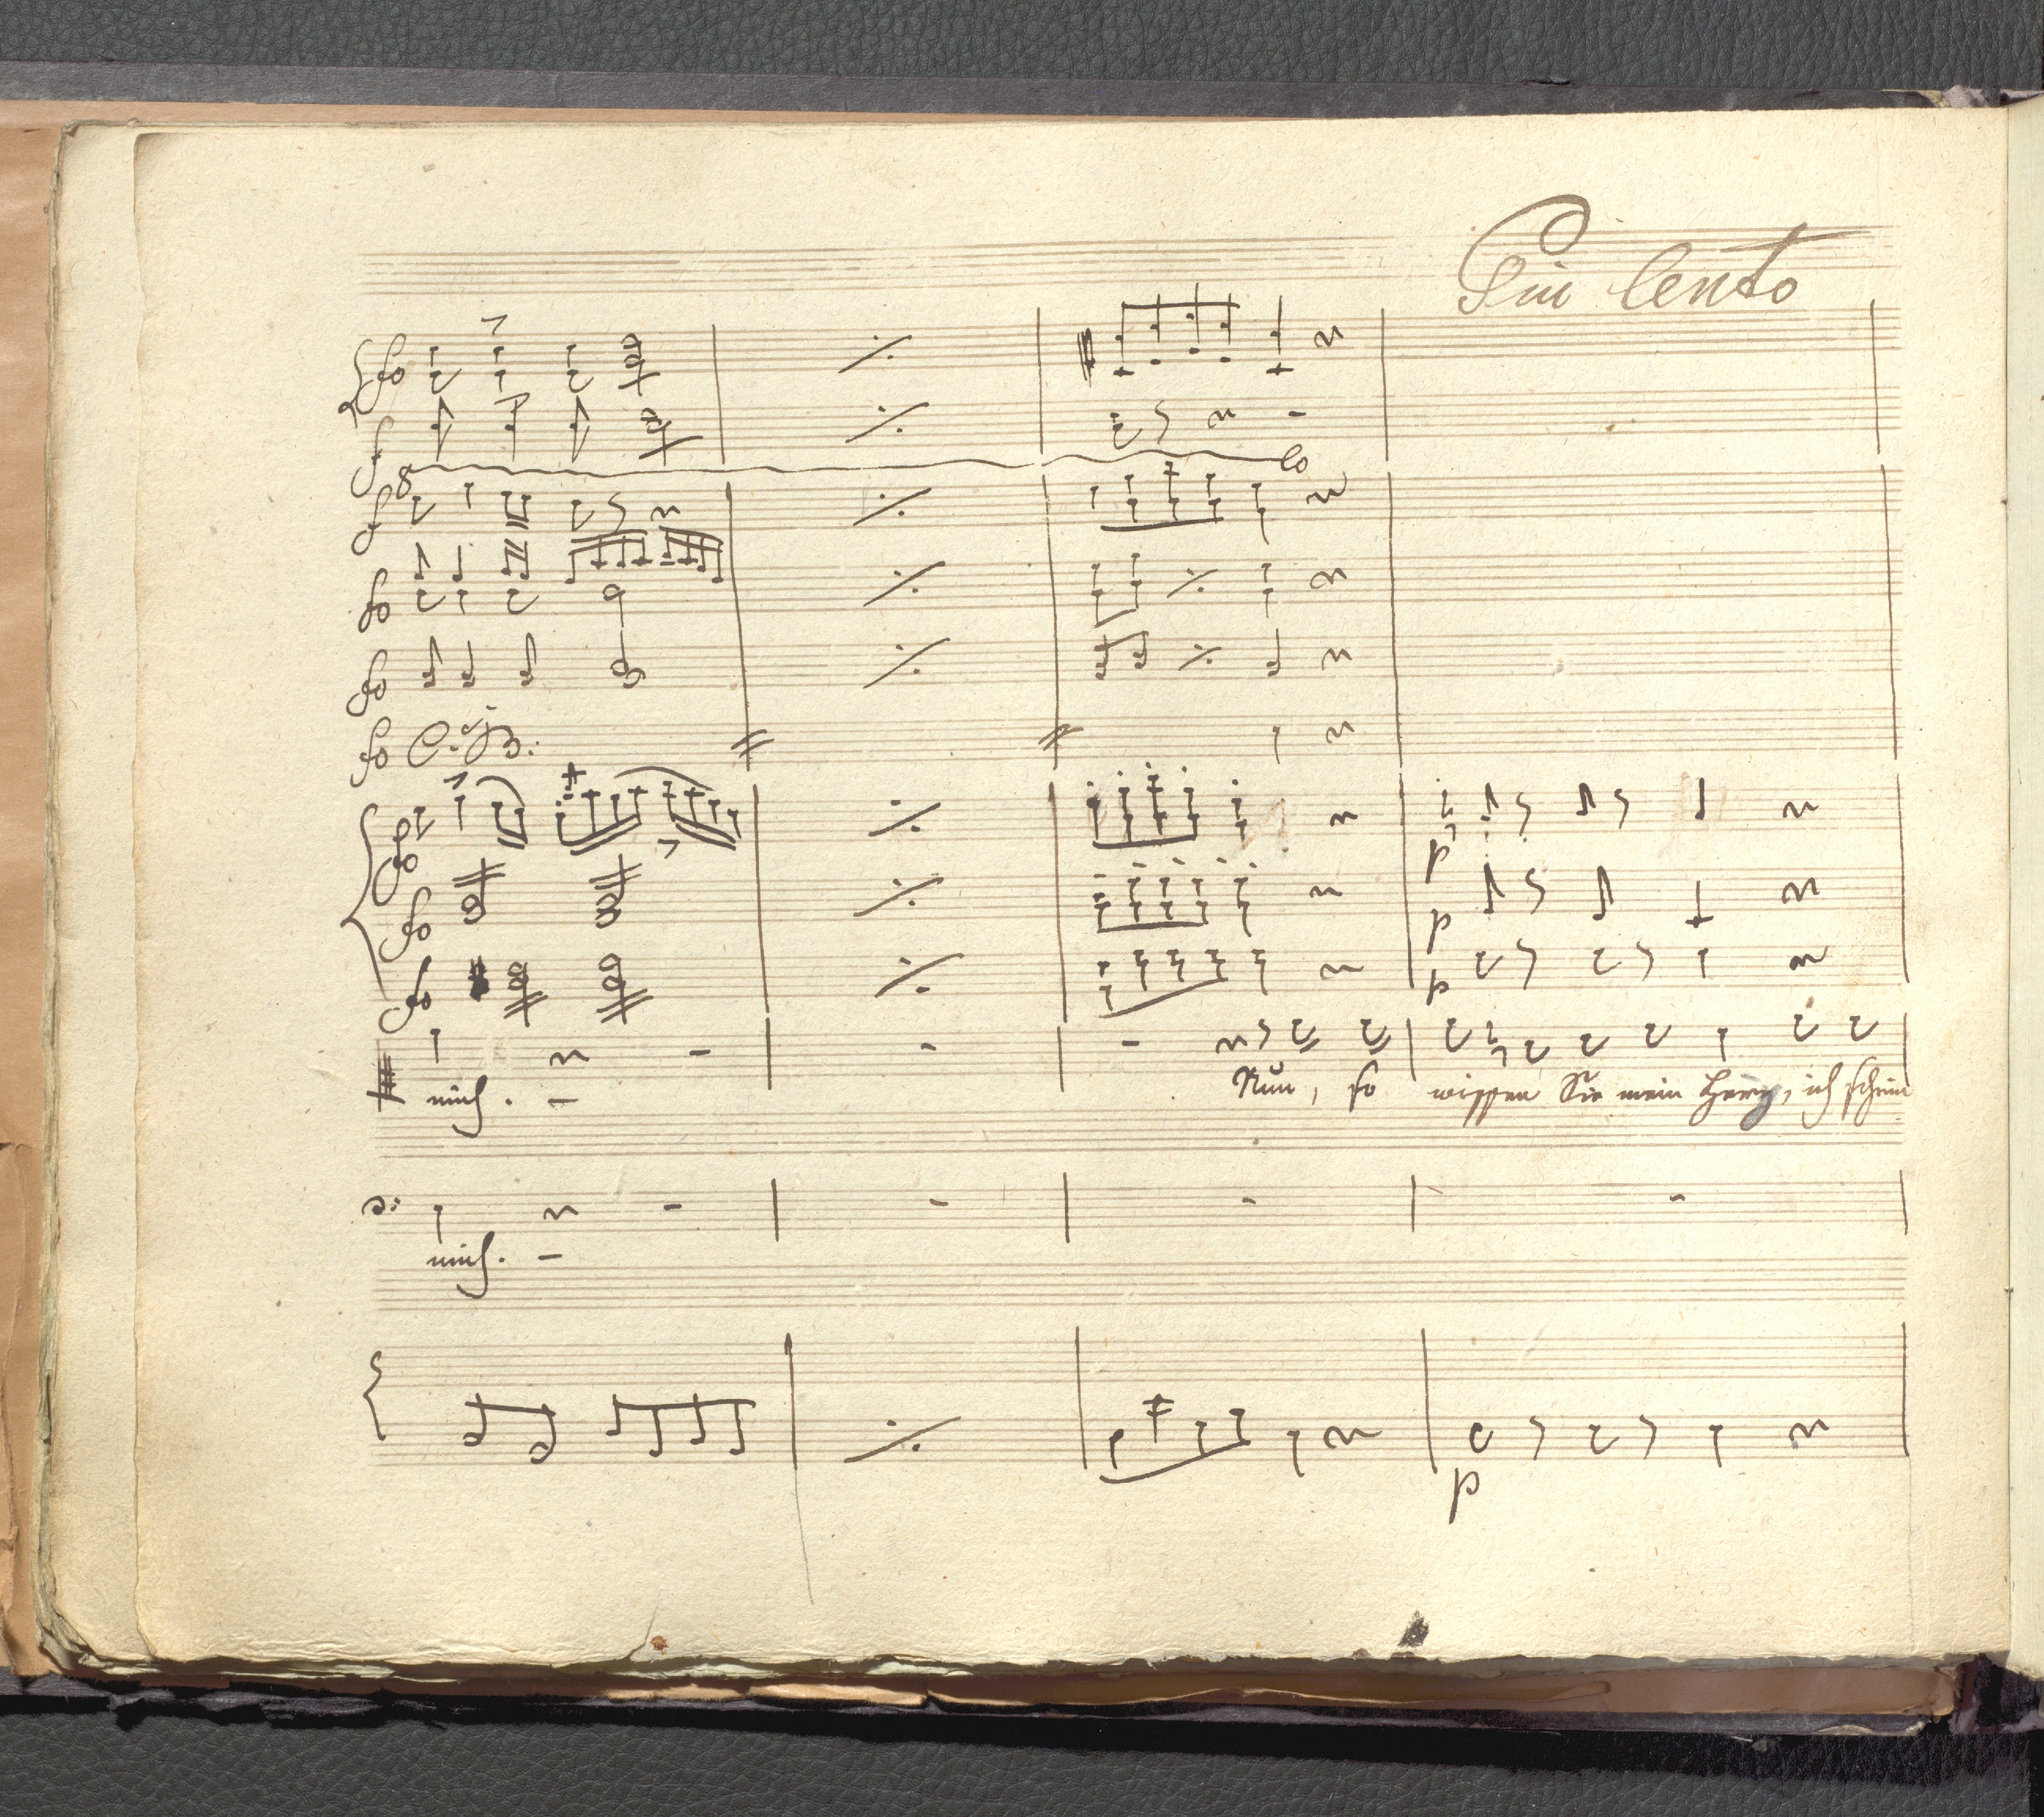 Piu lento
fo
f
8 lo
f
fo
fo
fo C. B.
fo p
fo p
fo p
mich. – Nun, so wissen Sie mein Herz, ich schein
mich. –
p